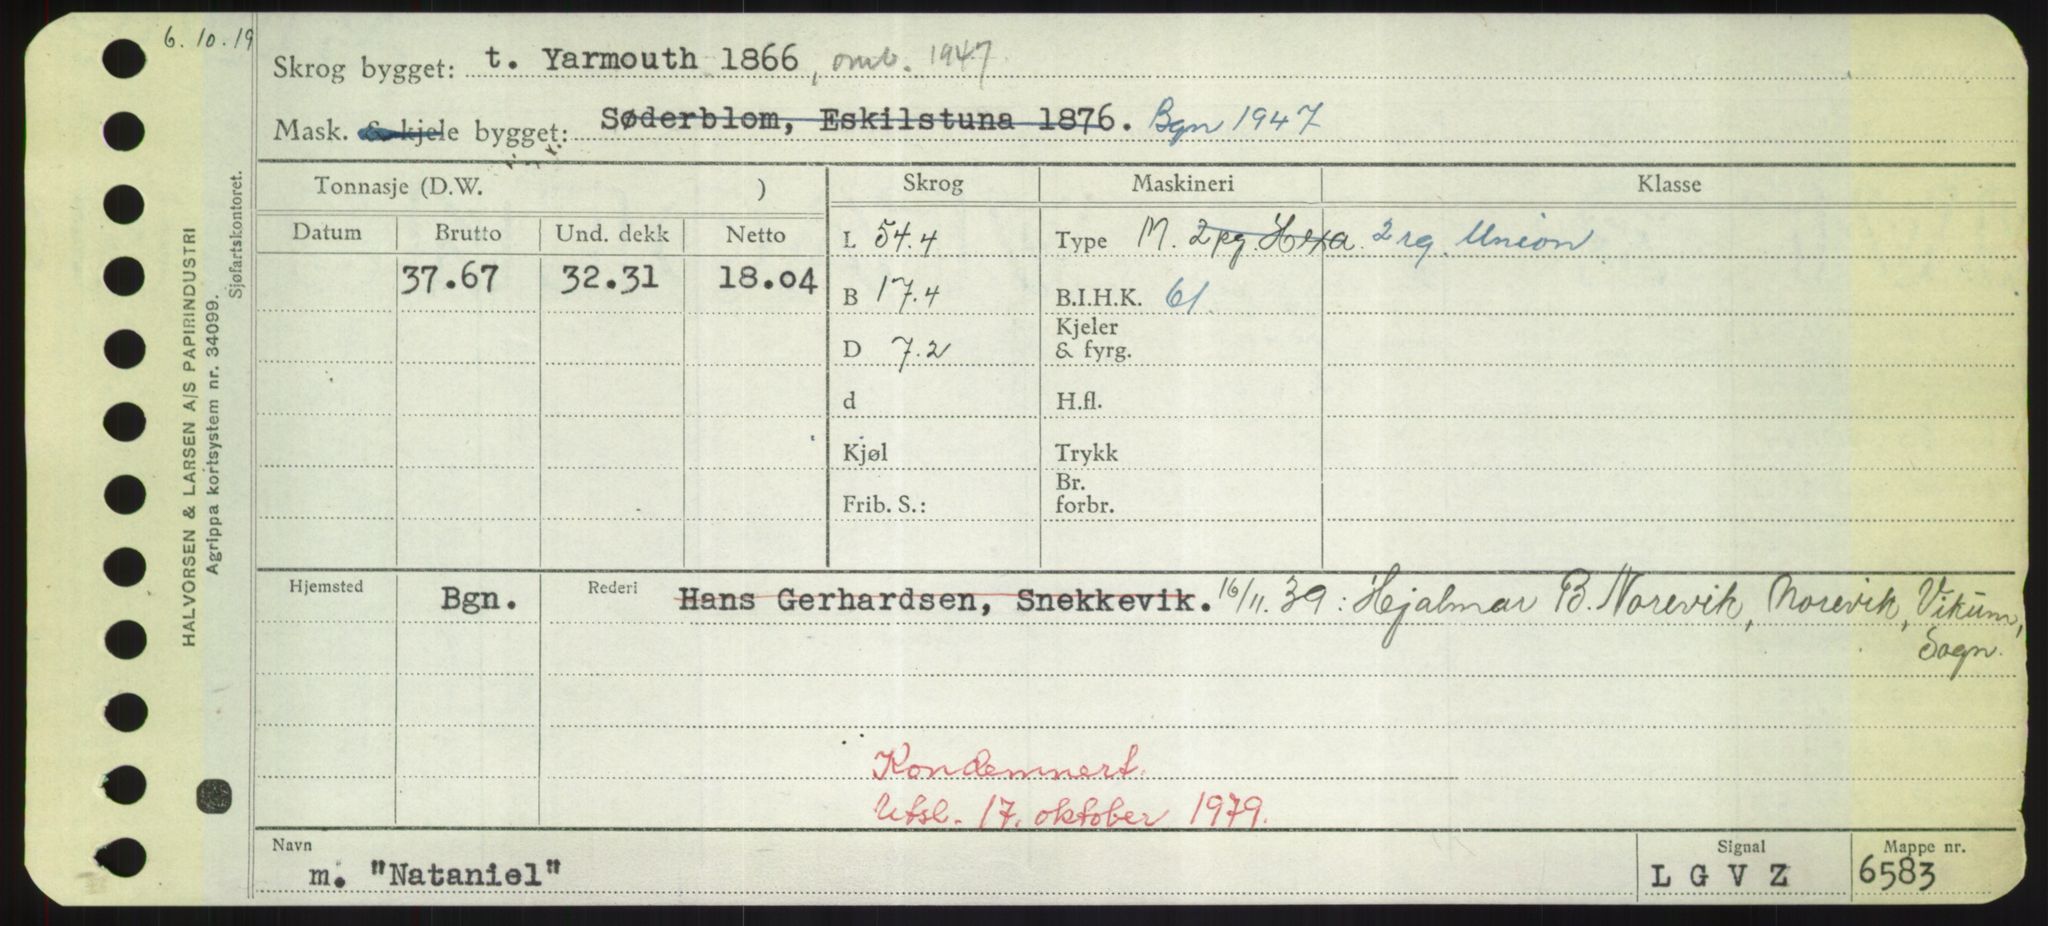 6. 10. 19
Skrog bygget: t. Yarmouth 1866, omb. 1947
Mask. & kjele bygget: Søderblom, Eskilstuna 1876. Bgn 1947
Tonnasje (D.W. )
Skrog
Maskineri
Klasse
Datum Brutto Und. dekk Netto
37.67 32.31 18.04
L 54.4
B 17.4
D 7.2
d
Kjøl
Frib. S.:
Type M. 2 pg. Hexa. 2 rg. Union
B.I.H.K. 61.
Kjeler
& fyrg.
H.fl.
Trykk
Br.
forbr.
Hjemsted Bgn. Rederi Hans Gerhardsen, Snekkevik. 16/11.39: Hjalmar B. Norevik, Norevik, Vikum,
Sogn.
Kondemnert.
Utsl. 17. oktober 1979.
Navn m. "Nataniel"
Signal LGVZ
Mappe nr. 6583
HALVORSEN & LARSEN A/S PAPIRINDUSTRI
Agrippa kortsystem nr. 34099.
Sjøfartskontoret.